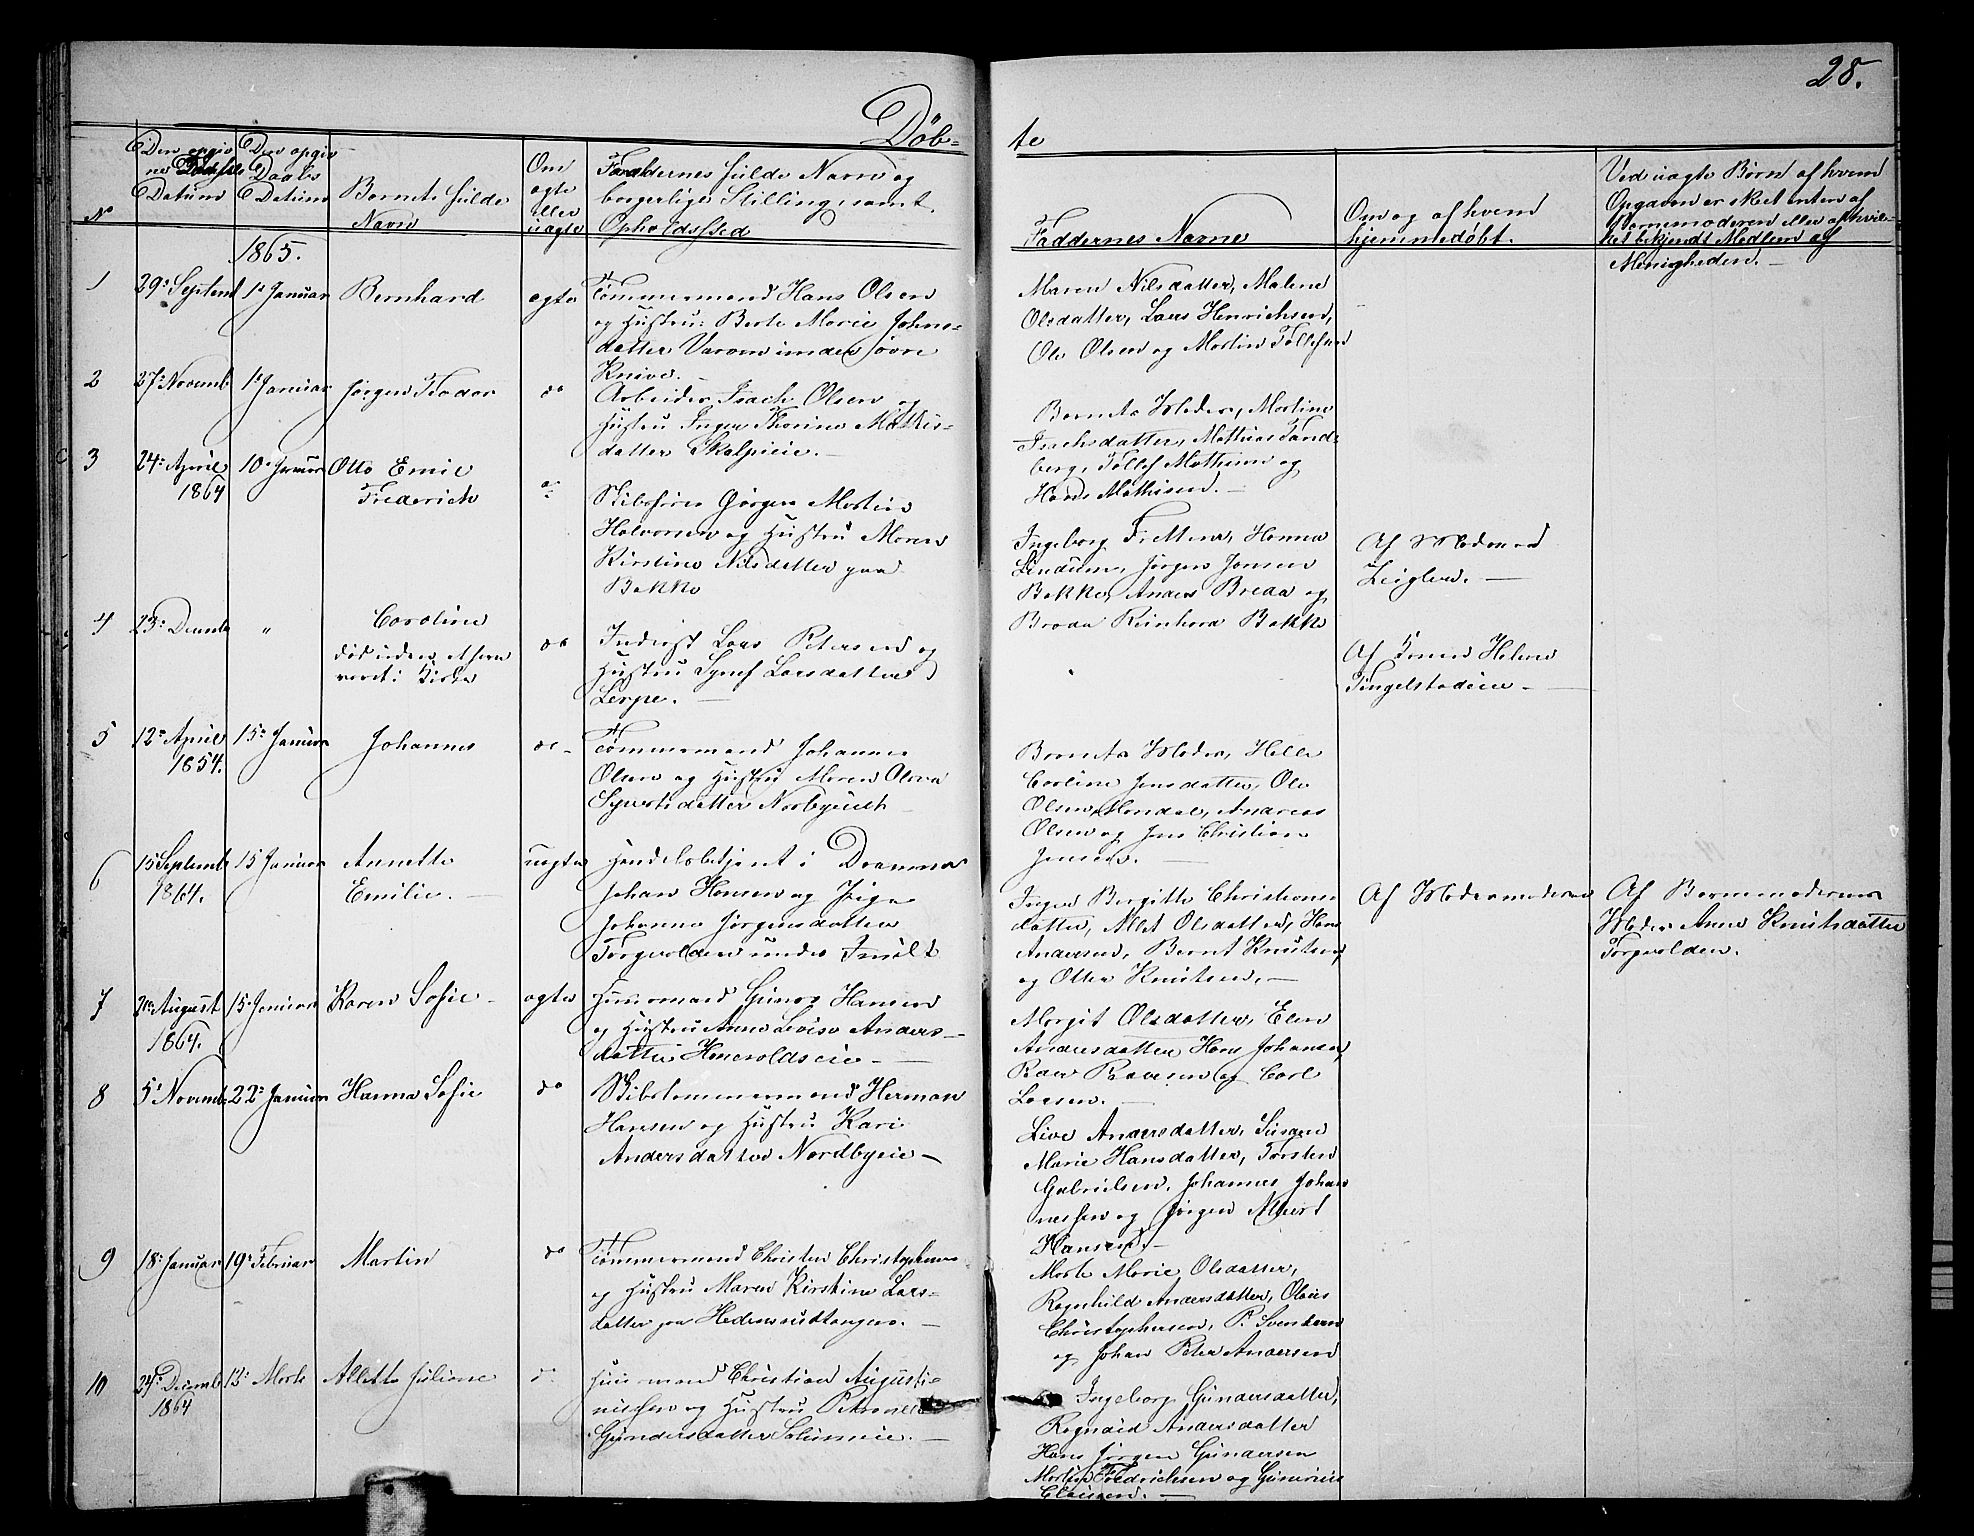 28.
Döb-
te
No
Den opgiv
ne Fødsels
Datum
Den opgiv
Daabs
Datum
Barnets fulde
Navn
Om
ægte
eller
uægte
Forældrenes fulde Navn og
borgerlige Stilling, samt
Opholdssted
Faddernes Navne
Om og af hvem
hjemmedøbt.
Ved uægte Børn af hvem
Opgaven er skeet enten af
Barnemoderen eller af hvil-
ket bekjendt Medlem af
Menigheden.
1865.
1
29de Septemb
1ste Januar
Bernhard
ægte
Tømmermand Hans Olsen
og Hustru Berte Marie Johns-
datter under søvre
Knive.
Maren Nilsdatter, Malene
Olsdatter, Lars Henrichsen,
Ole Olsen og Martin Tollefsen
2
27de Novemb
1ste Januar
Jørgen Teodor
do
Arbeider Isach Olsen og
Hustru Inger Thorine Mathis-
datter Skalpeeie.
Barnets Moder, Martine
Isachsdatter, Mathias Tand-
berg, Tollef Mathisen og
Hans Mathisen.
3
24de April
1864
10de Januar
Otto Emil
Frederich
do
Skibsfører Jørgen Martin
Halvorsen og Hustru Maren
Kirstine Nilsdatter paa
Bakke
Ingeborg Hanna
Lindum, Jørgen Jensen
Bakke, Anders Breda og
Reinhard Bakke
Af Madame
Zeigler.
4
23de Decemb
"
Caroline
død uden at have
været i Kirke
do
Inderst Lars Petersen og
Hustru Synef Larsdatter
Lerpe.
Af Konen Helene
Tingelstadeie
5
12te April
1854.
15de Januar
Johannes
do
Tømmermand Johannes
Olsen og Hustru Maren Olava
Syvertsdatter Norbyeiet
Barnets Moder, Helle
Carline Jensdatter, Ole
Olsen Hendal, Andreas
Olsen og Jens Christian
Jensen.
6
15 Septemb
1864.
15 Januar
Annette
Emilie.
uægte
Handelsbetjent i Drammen
Johan Hansen og Pige
Johanne Jørgensdatter
Torgevolden under Smilt
Inger Bergitte Christians
datter, Allet Olsdatter, Hans
Andersen, Bernt Knutsen,
og Otter Knutsen.
Af Modermoderen
Af Barnemoderens
Moder Anne Knutsdatter
Torpvolden.
7
August
1864.
15de Januar
Karen Sofie
ægte
Huusmand Gunar Hansen
og Hustru Anne Lovise Anders-
datter Haneroldseie
Margit Olsdatter, Elen
Andersdatter Hans Johansen,
Roer Roersen og Carl
Larsen.
8
5te Novemb
22de Januar
Hanna Sofie
do
Skibstømmermand Herman
Hansen og Hustru Kari
Andersdatter Nordbyeie
Live Andersdatter, Sirgen
Marie Hansdatter, Torsten
Gabrielsen, Johannes Johan
nessen og Jørgen
Hansen.
9
18de Januar
19de Februar
Martin
do
Tømmermand Christen Christophersen
og Hustru Maren Kirstine Lars-
datter paa Hedensrudtangen.
Marte Marie Olsdatter,
Ragnhild Andersdatter, Olaus
Christophersen, P. Svendsen
og Johan Peter Andersen
10
24de Decemb
1864
13de Marts
Allette Juliane
do
Huusmand Christian Augusti-
nussen og Hustru Petronelle
Gundersdatter Solumeie.
Ingeborg Gundersdatter,
Ragnild Andersdatter
Hans Jørgen Gundersen
Martin Fredrichsen og Gunerius
Clausen.